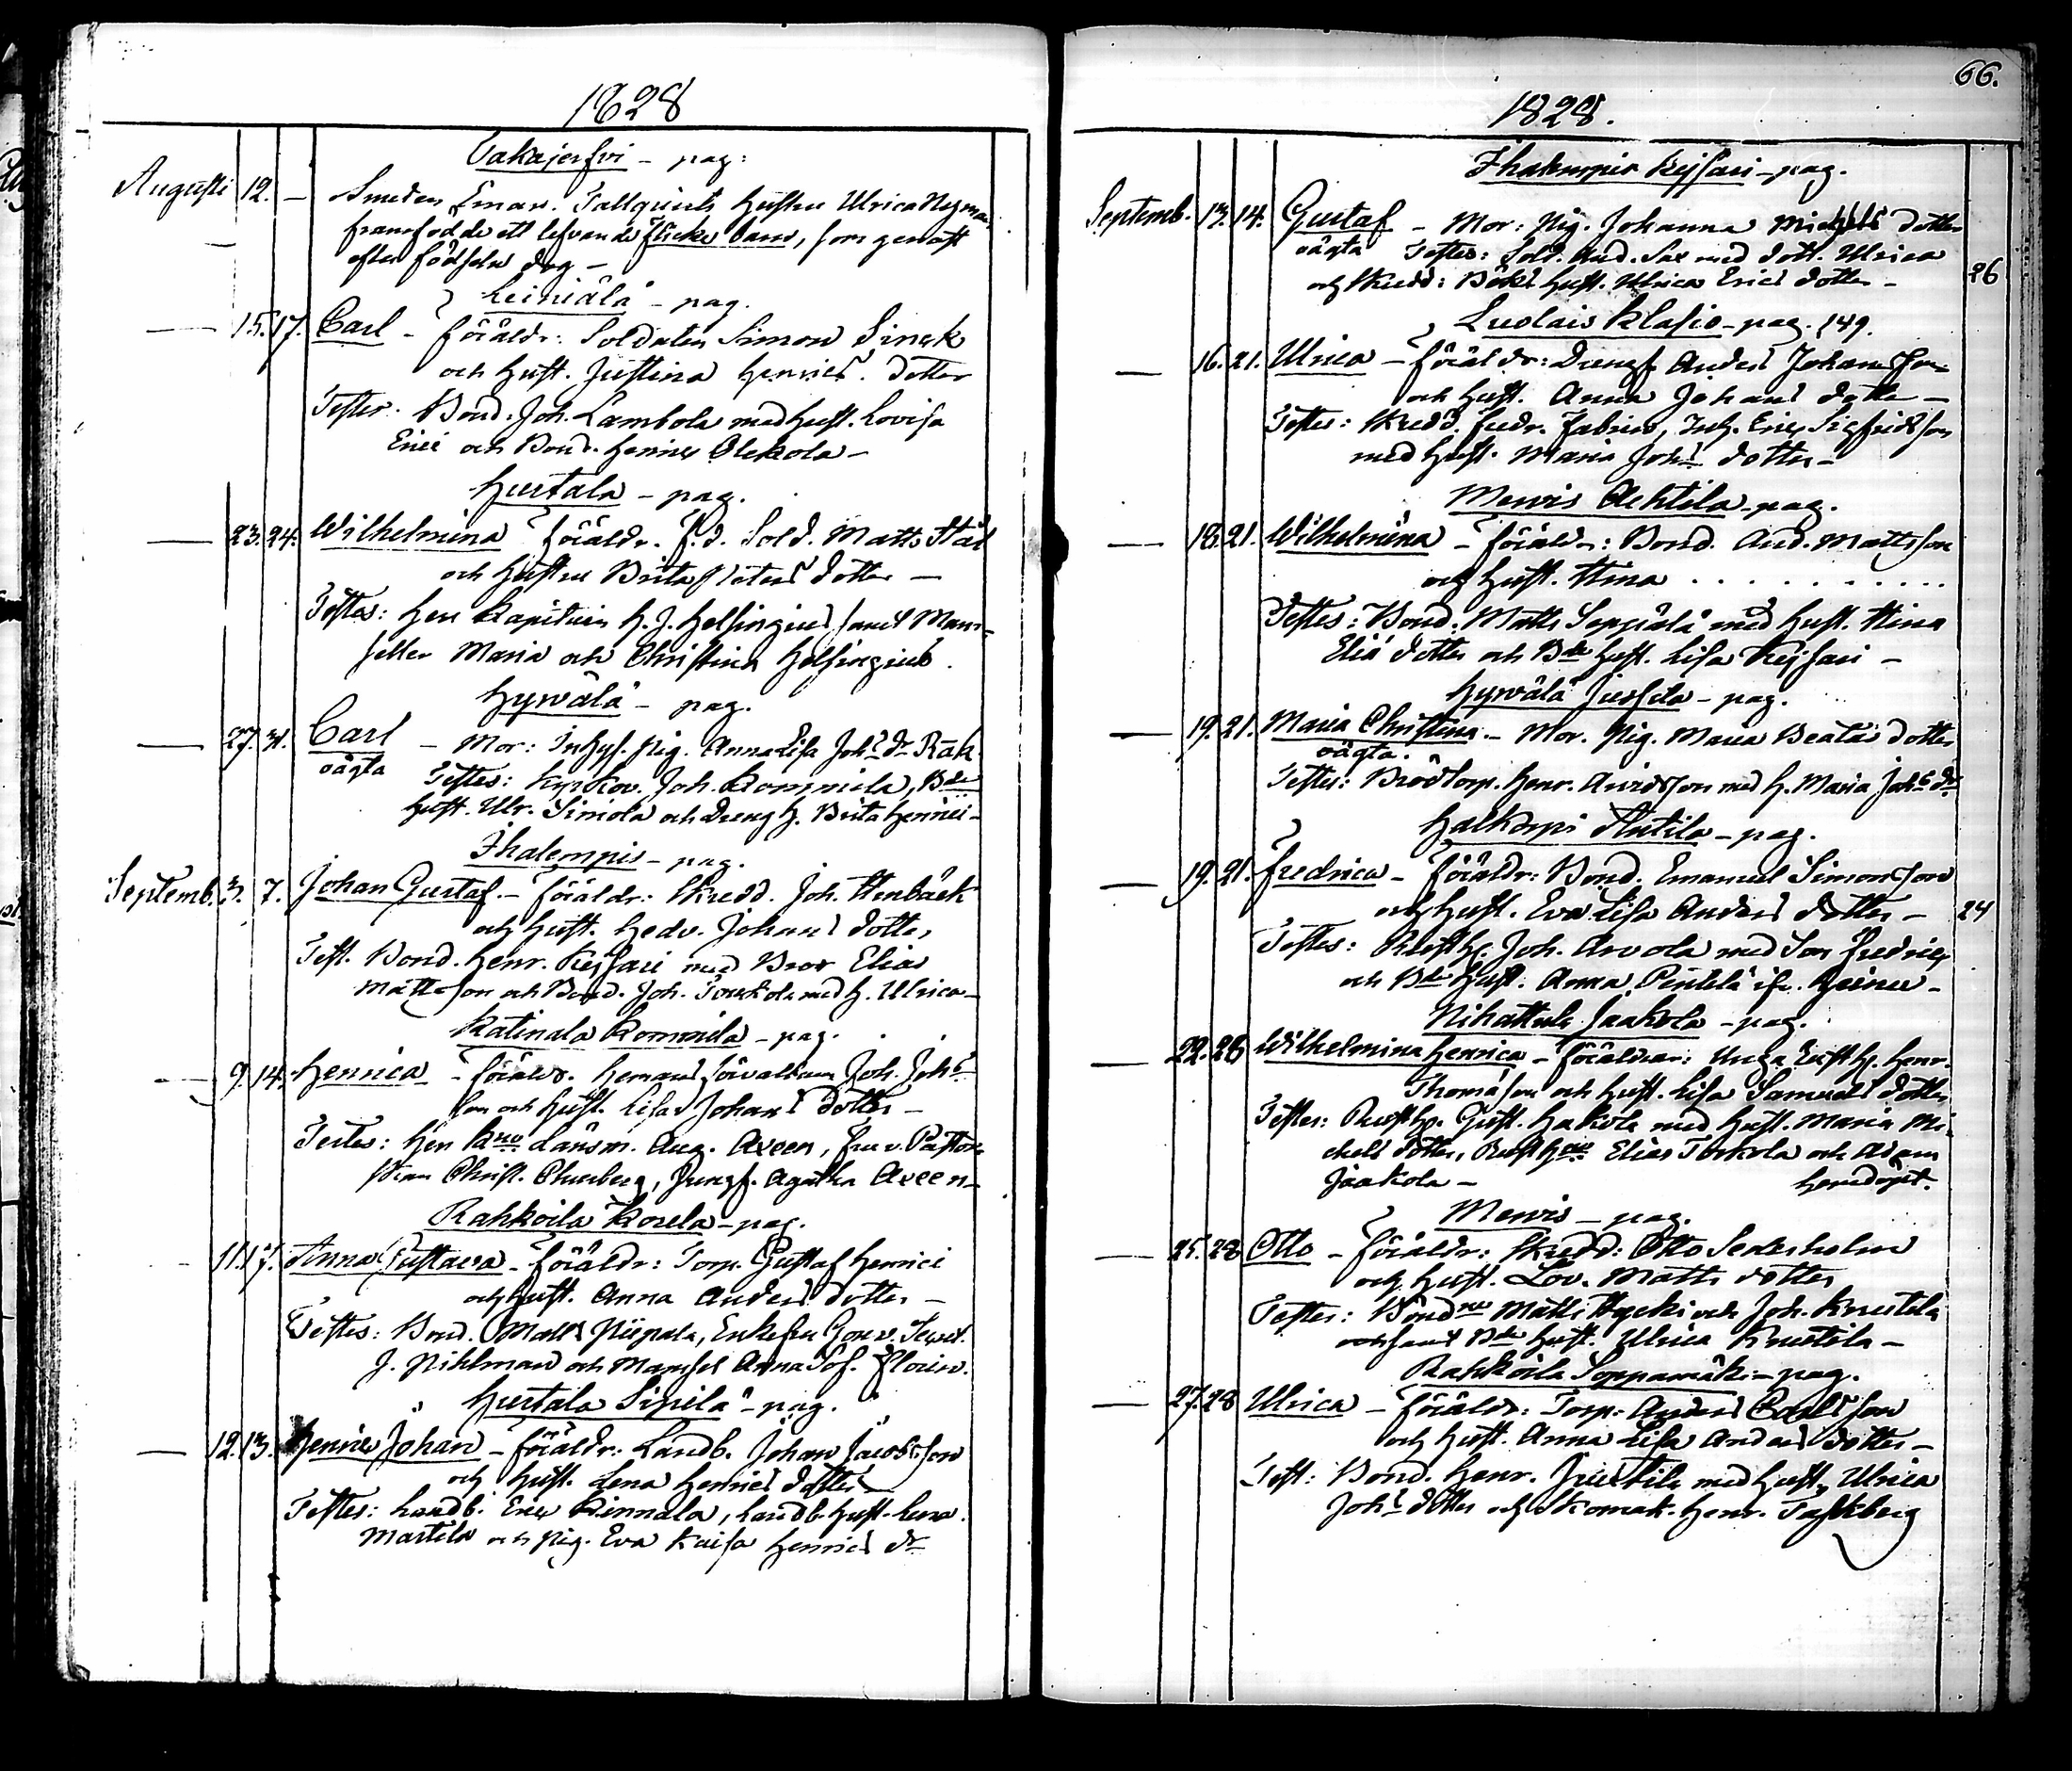 1828
Takajerfvi - pag:
Augusti 12. - Smeden Eman. Tallqvists hustru Ulrica Nyman
framfödde ett lefvande flicke barn, som genast
efter födseln dog -
Leiniälä - pag.
15. 17. Carl - föräldr: Soldaten Simon Sinck
och hust. Justina Henrics. dotter
Testes. Bond. Joh. Lambola med hust. Lovisa
Erici och Bond. Henric Olckola -
Hurtala - pag.
23. 24. Wilhelmina föräldr. f.d. Sold. Matts Stål
och hustru Brita Peters dotter -
Testes: Herr Kapiten H. J. Helsingius samt Mam-
seller Maria och Christina Helsingius.
Hyvälä - pag.
27. 31. Carl - Mor: Inhys. pig. Anna Lisa Joh:s dr Rak
oägta Testes: Kyrkov. Joh. Kommila, Bde
hust. Ulr. Simola och Dreng h. Brita Henrici -
Ihalempis - pag.
Septemb. 3. 7. Johan Gustaf. - föräldr: Skredd. Joh. Stenbäck
och hust. Hedv. Johans dotter
Test. Bond. Henr. Kejsari med Bror Elias
Matts son och Bond. Joh. Touckola med h. Ulrica -
Katinala Kommila - pag.
9. 14. Henrica - föräld. hemans förvaltaren Joh. Joh:s
son och hust. Lisa Johans dotter -
Testes: Herr Krono Länsm. Aug. Axeen, fru v. Pastor-
skan Christ. Churberg, Jungf. Agatha Axeen -
Rahkoila Korela - pag.
11. 17. Anna Gustava - föräldr: Torp. Gustaf Henrici
och hust. Anna Anders dotter -
Testes: Bond. Matts Piipala, Enkefru Gouv. Secret.
J. Pihlman och Mamsel Anna Sof. Florin.
Hurtala Sipilä - pag.
12. 13. Henric Johan - föräldr: Landb. Johan Jacobs son
och hust. Lena Henrics dotter
Testes: Landb. Eric Kinnala, Landb. hust. Lena
Martila och pig. Eva Kaisa Henrics dr
66.
1828.
Ihalempis Kejsari - pag.
Septemb. 13. 14. Gustaf - Mor: Pig. Johanna Michels dotter
oägta Testes: Sold. And. Sax med dott. Ulrica
och Skredd: Böks hust. Ulrica Erics dotter - 26
Luolais Klasio - pag. 149.
16. 21. Ulrica - föräldr: Drengf. Anders Johans son
och hust. Anna Johans dotter -
Testes: Skredd. Fredr. Fabrin, Inh. Eric Sigfrids son
med hust. Maria Joh:s dotter -
Mervis Ahtila - pag.
18. 21. Wilhelmina - föräldr: Bond. And. Matts son
och hust. Stina . . . . . . . . .
Testes: Bond. Matts Seppälä med hust. Stina
Eliæ dotter och Bde hust. Lisa Kejsari -
Hyvälä Jussila - pag.
19. 21. Maria Christina. - Mor. Pig. Maria Beata dotter
oägta.
Testes: Brödtorp. Henr. Arvids son med h. Maria Joh:s dr
Halkorpi Antila - pag.
19. 21. Fredrica - föräldr: Bond. Emanuel Simons son
och hust. Eva Lisa Anders dotter - 24
Testes: Rusth. Joh. Arvola med Son Fredric
och Bde hust. Anna Pentilä
Nihattula Jaakola - pag.
22. 28 Wilhelmina Henrica - föräldrar: Unga Rusth. Henr.
Thomæ son och hust. Lisa Samuels dotter
Testes: Rusth. Gust. Hakola med hust. Maria Mi-
chels dotter, Rusth. Elias Torkola och Adam
Jaakola - hemdöpt.
Mervis - pag.
25. 28 Otto - föräldr: Skredd: Otto Sederholm
och hust. Lov. Matts dotter
Testes: Bönd:ne Matts Hycki och Joh. Knuutila
samt Bde hust. Ulrica Knuutila -
Rahkoila Seppamäki - pag.
27. 28 Ulrica - föräldr: Torp: Anders Carls son
och hust. Anna Lisa Anders dotter -
Test: Bond. Henr. Juutila med hust. Ulrica
Joh:s dotter och Skomak. Henr. Taskberg